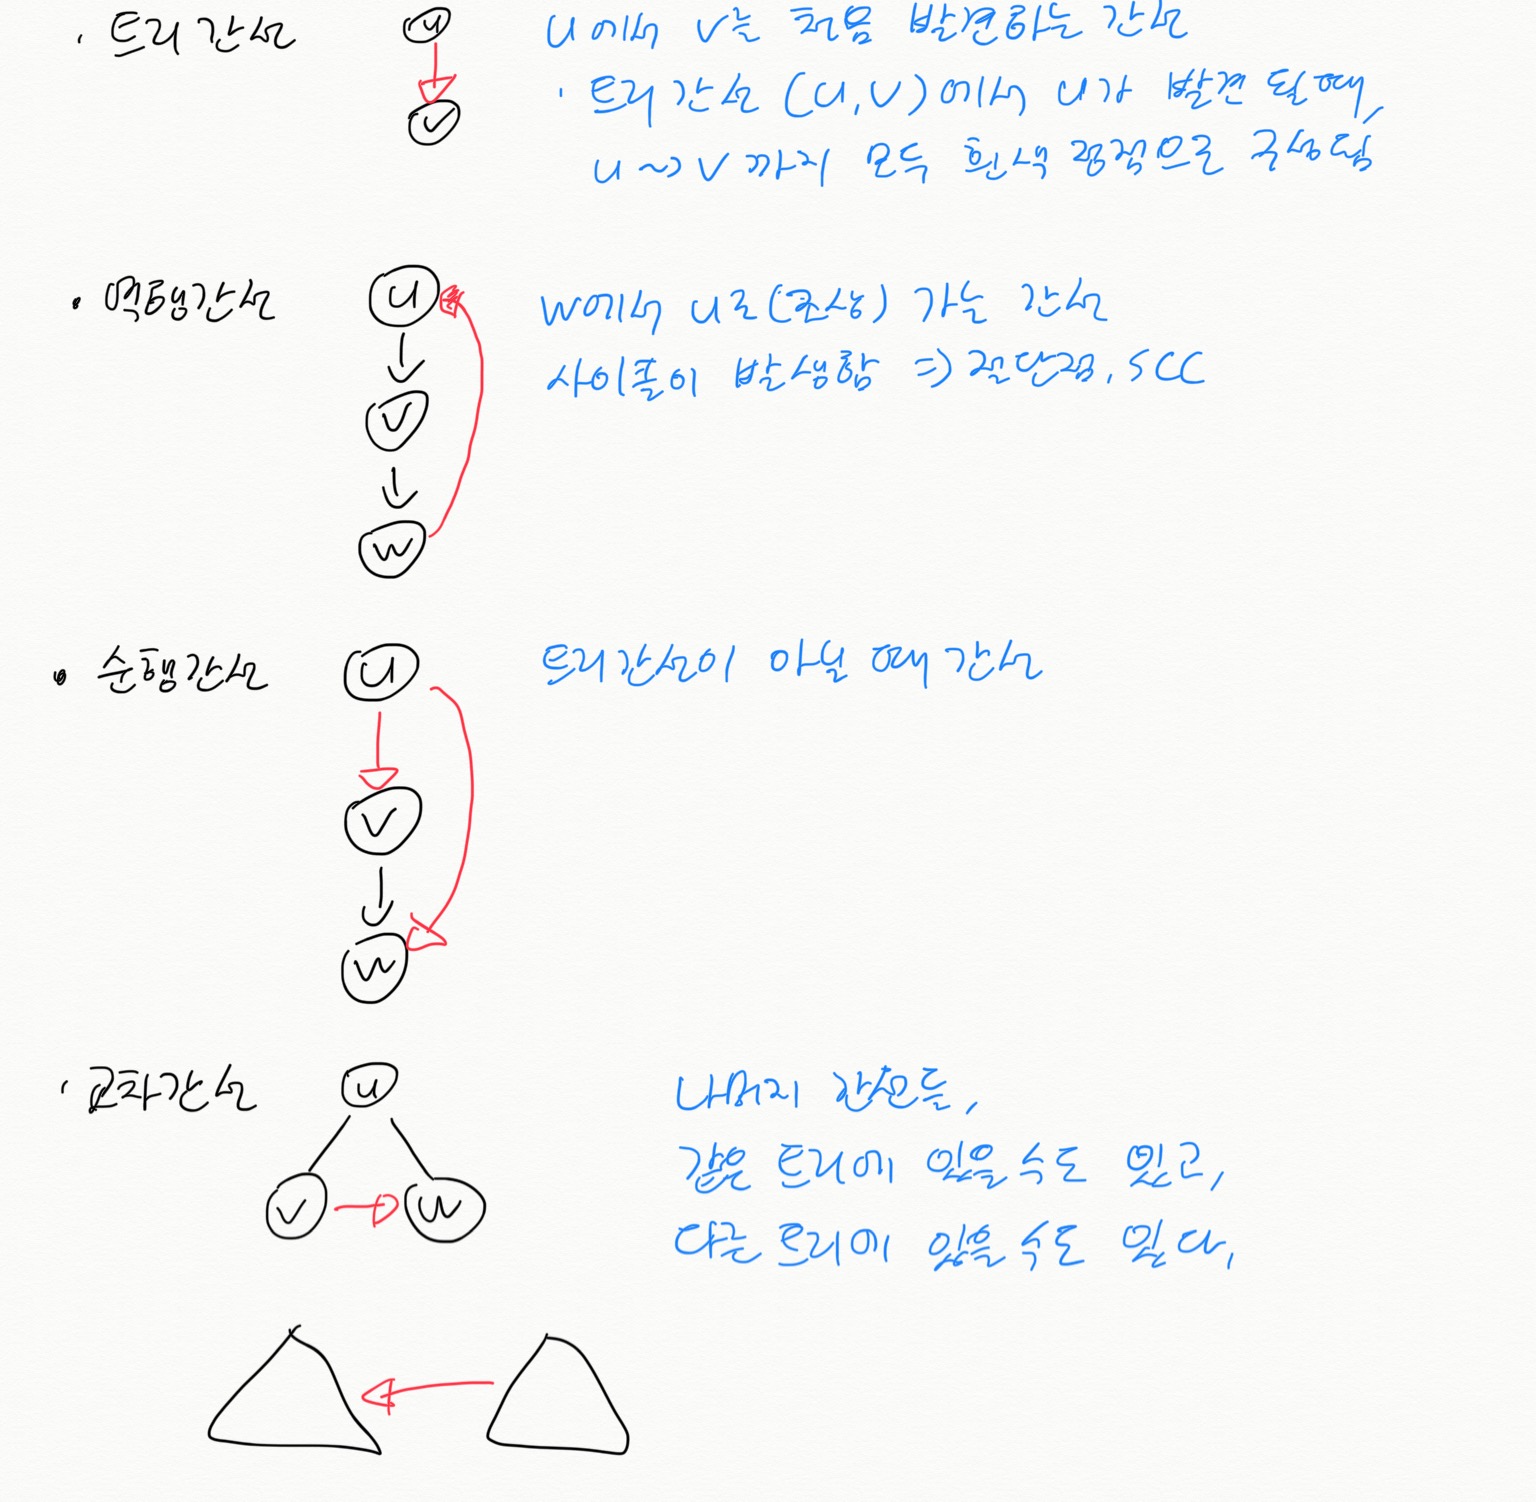 · 트리 간선
u
v
u에서 v를 처음 발견하는 간선
· 트리 간선 (u,v)에서 u가 발견 될 때,
u ~> v 까지 모두 흰색 정점으로 구성됨
· 역행간선
u
v
w
w에서 u로(조상) 가는 간선
사이클이 발생함 => 절단점, SCC
· 순행간선
u
v
w
트리간선이 아닐 때 간선
· 교차간선
u
v
w
나머지 간선들,
같은 트리에 있을 수도 있고,
다른 트리에 있을 수도 있다.